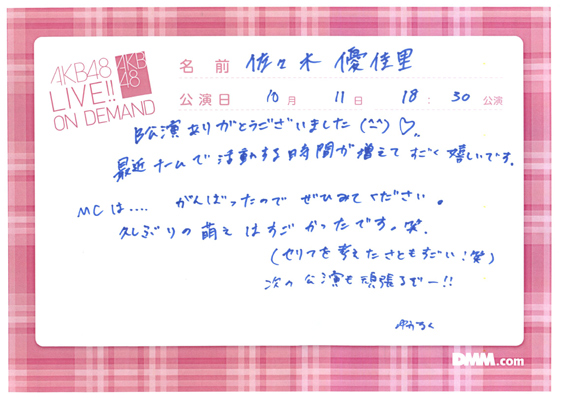 AKB48
LIVE!!
ON DEMAND
AKB
48
名前 佐々木優佳里
公演日 10月 11日 18:30公演
公演ありがとうございました(^^)♡
最近チームで活動する時間が増えてすごく嬉しいです。
MCは.... がんばったので ぜひみてください。
久しぶりの萌えはすごかったです。笑
(セリフを考えたさともすごい!笑)
次の公演も頑張るぞー!!
DMM.com